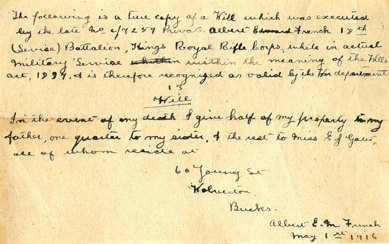 The following is a true copy of a Will which was executed
by the late No c/7259 Private Albert Edward French 18th
(Service) Battalion, Kings Royal Rifle Corps, while in actual
Military Service within the meaning of the Wills
act, 1837, & is therefore recognized as valid by the War department
Will
In the event of my death I give half of my property to my
father, one quarter to my sister, & the rest to Miss E J
all of whom reside at
60 Young St
Wolverton
Bucks.
Albert E. French
May 1st 1916